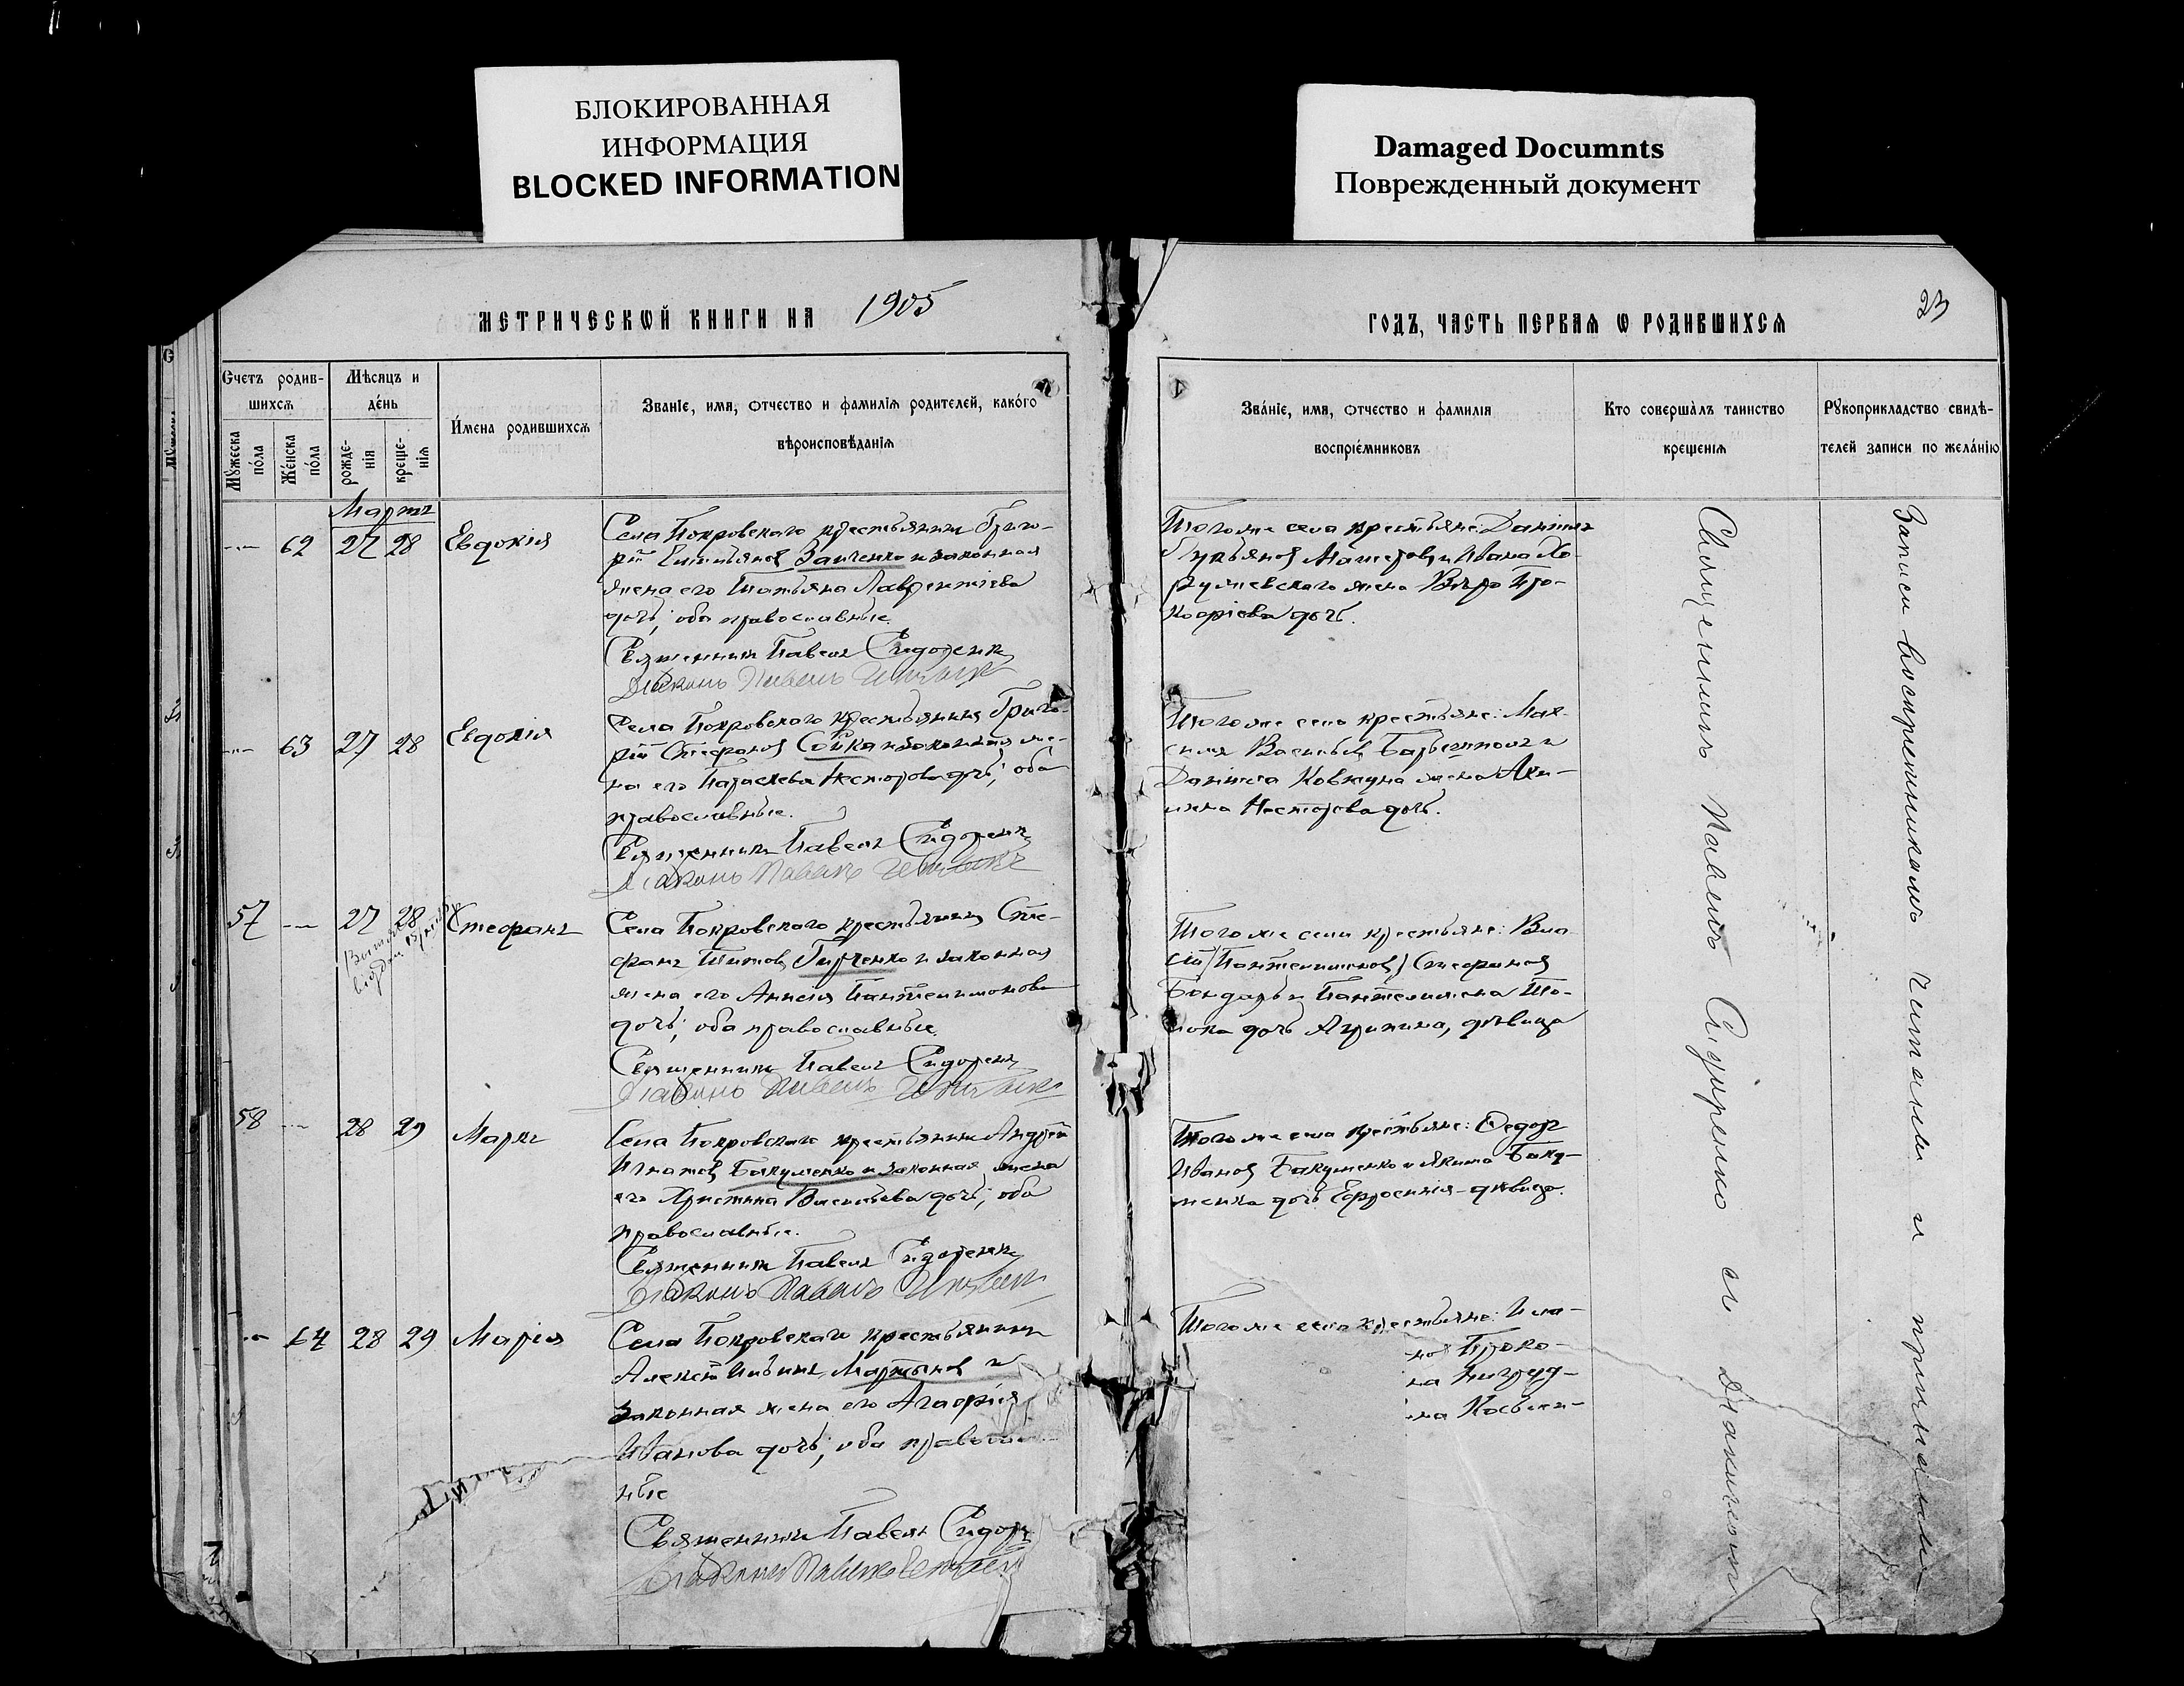 БЛОКИРОВАННАЯ
ИНФОРМАЦИЯ
BLOCKED INFORMATION
Damaged Documnts
Поврежденный документ
МЕТРИЧЕСКѠЙ КНИГИ НА 1905
ГОДЪ, ЧАСТЬ ПЕРВАѦ Ѡ РОДИВШИХСѦ
23
Счетъ родив-
шихсѧ
Мѣсяцъ и
де́нь
Мꙋжеска
по́ла
Же́нска
по́ла
рожде-
нія
креще-
нія
И́мена родившихсѧ
Званіе, имя, отчество и фамилія родителей, како́го
вѣроисповѣданія
Зва́ніе, имя, отчество и фамилія
воспріе́мниковъ
Кто соверша̀лъ таинство
крещенія
Рꙋкоприкладство свидѣ-
телей записи по жела́нію
Мартъ
--- 62 27 28 Евдокія
Села Покровскаго крестьянинъ Григо-
рій Заиченко и законная
жена его Татьяна Лаврентіева
дочь, оба православные.
Священникъ Павелъ Сидоренко
Діаконъ Павелъ
Того же села крестьяне: Даніилъ
и Ивана Хо-
жена Вѣра Про-
кофіева дочь.
--- 63 27 28 Евдокія
Села Покровскаго крестьянинъ Григо-
рій Стефановъ Сойка и законная же-
на его Параскева Несторова дочь; оба
православные.
Священникъ Павелъ Сидоренко
Діаконъ Павелъ
Того же села крестьяне: Мак-
симъ Васильевъ и
Даніила Ковтуна жена Аки-
лина Несторова дочь.
57 --- 27 28 Стефанъ
Села Покровскаго крестьянинъ Сте-
фанъ Титовъ и законная
жена его Анисія Пантелимонова
дочь; оба православные.
Священникъ Павелъ Сидоренко
Діаконъ Павелъ
Того же села крестьяне: Вла-
сій (Пантелимоновъ) Стефановъ
Бондарь и Пантелимона То-
дочь Агрипина, дѣвица
58 --- 28 29 Маркъ
Села Покровскаго крестьянинъ Андрей
Игнатовъ Бакуменко и законная жена
его Христина Васильева дочь; оба
православные.
Священникъ Павелъ Сидоренко
Діаконъ Павелъ
Того же села крестьяне: Ѳедоръ
Ивановъ Бакуменко и Якима Баку-
менка дочь Ефросинія - дѣвица.
--- 64 28 29 Марія
Села Покровскаго крестьянинъ
Алексѣй Мартыновъ и
законная жена его Агафія
Иванова дочь; оба православ-
ные
Священникъ Павелъ Сидор
Діаконъ
Того же села крестьяне:
Проко-
на
Священникъ Павелъ Сидоренко съ діакономъ
Записи воспріемникамъ читали и